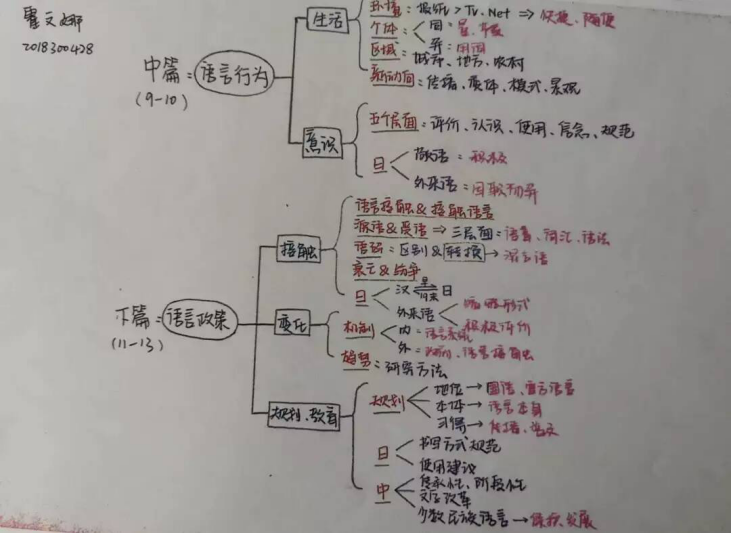 环境：报纸 > Tv. Net ⇒ 快捷、随便
生活
个体：同：
异：
文娜
2018300428
区域：城市、地方、农村
中篇：语言行为
(9-10)
新动向：传播、媒体、模式、景观
五个层面：评价、认识、使用、信念、规范
意识
日
敬语：积极
外来语：
语言接触&接触语言
源语&受语 ⇒ 三层面：语音、词汇、语法
接触
语码：区别&转换 →
衰亡&纷争
日
汉 日
外来语
积极评价
下篇：语言政策
(11-13)
变化
机制
内：语言系统
外：语言接触
趋势：研究方法
规划
地位 → 国语、官方语言
本体 → 语言本身
习得 →
规划、教育
日
书写方式规范
使用建议
中
传承性、阶段性
文字改革
少数民族语言 → 保护发展